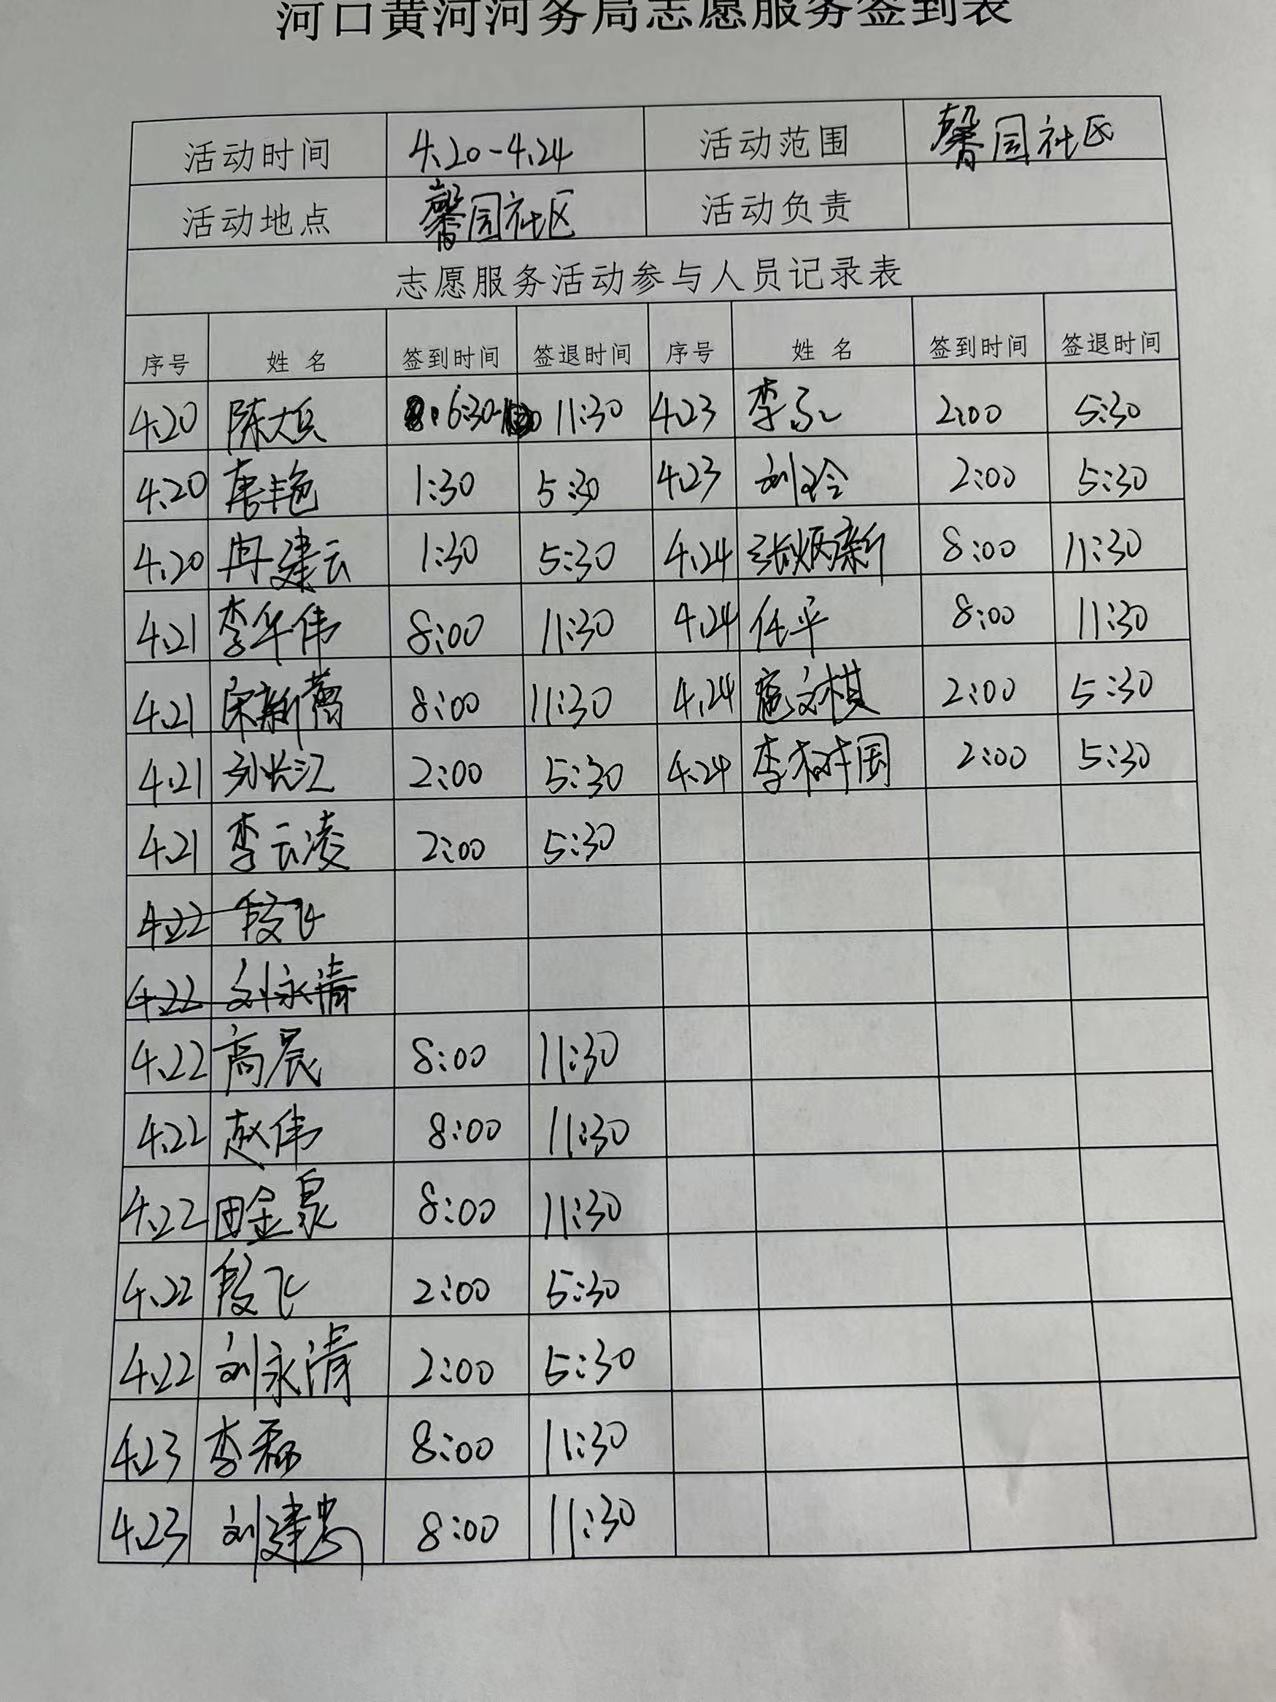 河口黄河河务局志愿服务签到表
活动时间 4.20-4.24 活动范围 馨园社区
活动地点 馨园社区 活动负责
志愿服务活动参与人员记录表
序号 姓名 签到时间 签退时间 序号 姓名 签到时间 签退时间
4.20 陈大兵 6:30 11:30 4.23 李 2:00 5:30
4.20 唐艳 1:30 5:30 4.23 刘玲 2:00 5:30
4.20 冉建云 1:30 5:30 4.24 张炳新 8:00 11:30
4.21 李华伟 8:00 11:30 4.24 任平 8:00 11:30
4.21 宋新蕾 8:00 11:30 4.24 扈文棋 2:00 5:30
4.21 刘长江 2:00 5:30 4.24 李树国 2:00 5:30
4.21 李云凌 2:00 5:30
4.22 段飞
4.22 刘永清
4.22 高晨 8:00 11:30
4.22 赵伟 8:00 11:30
4.22 田金泉 8:00 11:30
4.22 段飞 2:00 5:30
4.22 刘永清 2:00 5:30
4.23 李磊 8:00 11:30
4.23 刘建忠 8:00 11:30